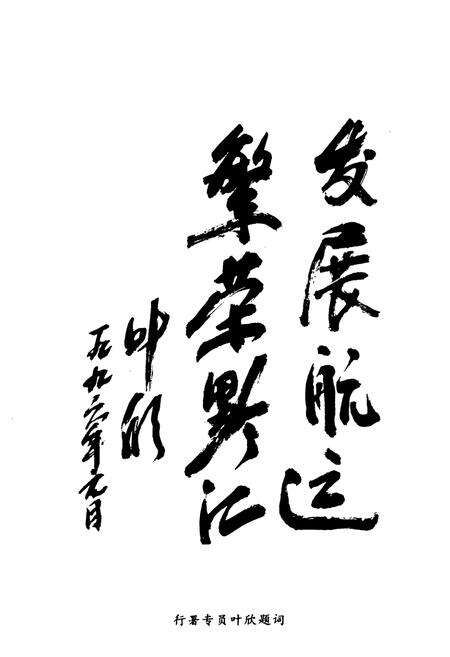 发展航运
繁荣黔江
叶欣
一九九六年元月
行署专员叶欣题词